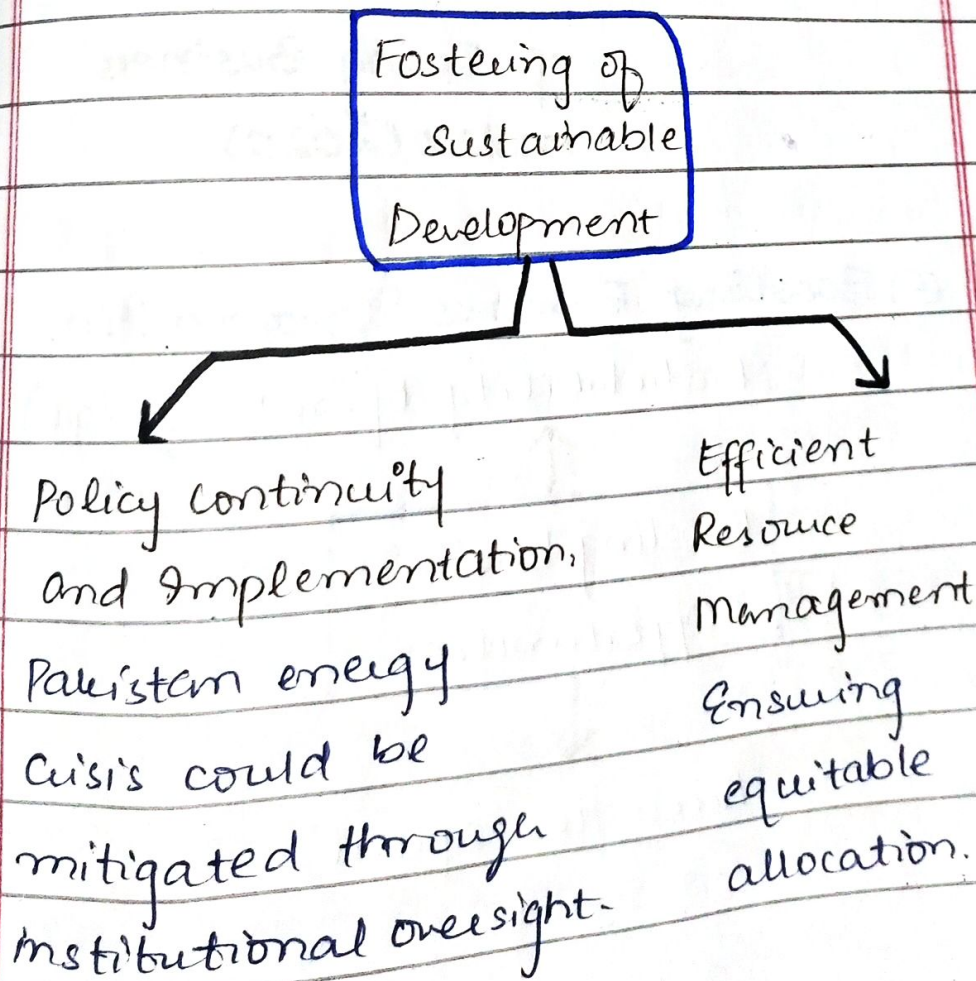 Fostering of
Sustainable
Development
Policy continuity
and Implementation,
Pakistan energy
crisis could be
mitigated through
institutional oversight.
Efficient
Resource
Management
Ensuring
equitable
allocation.